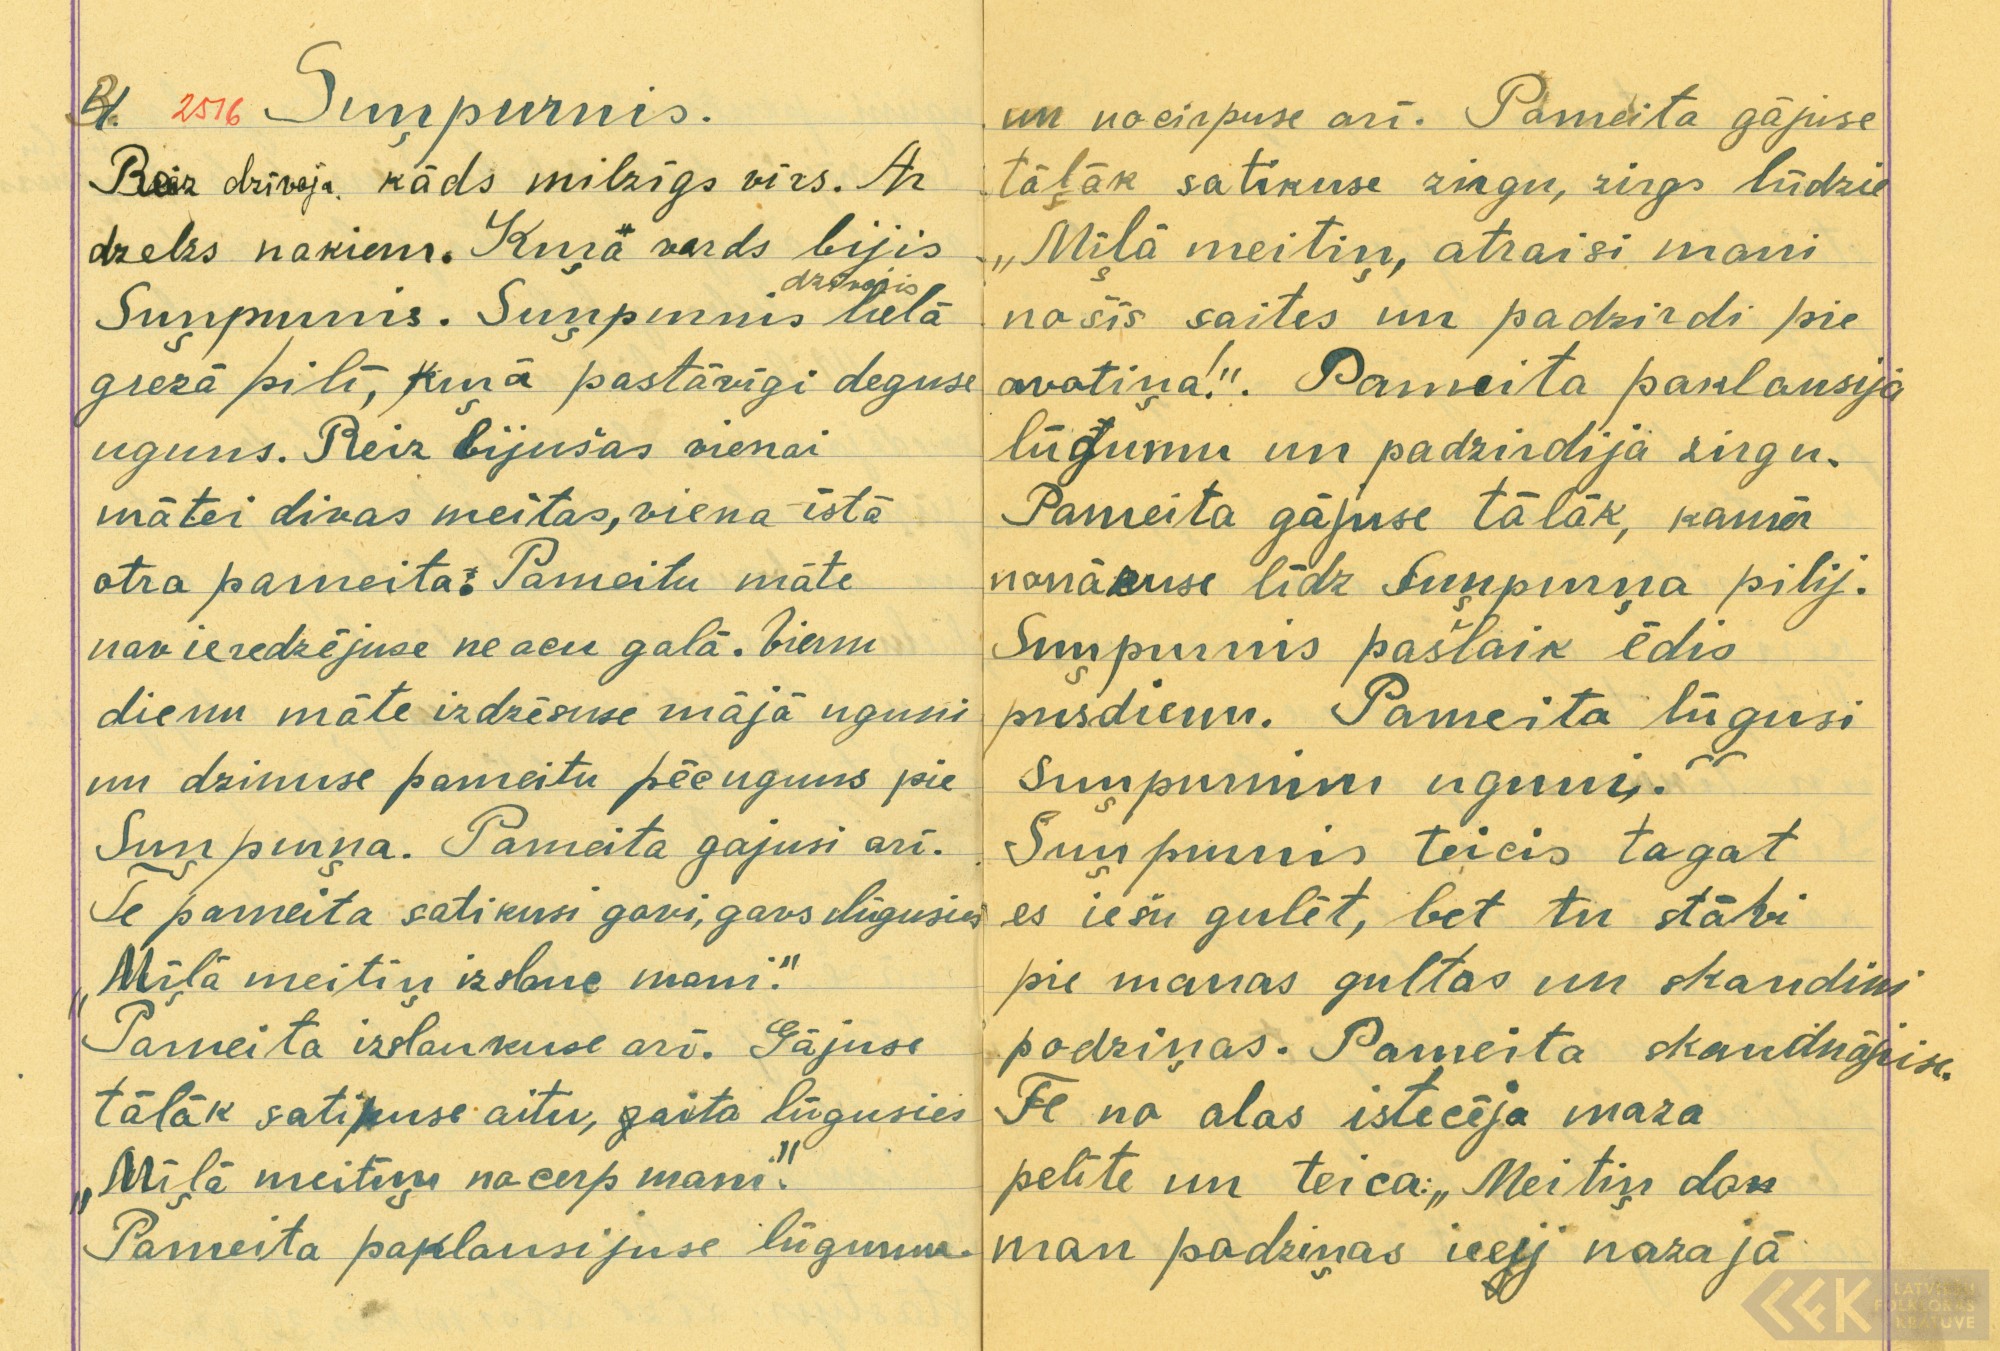 21. 2516 Suņpurnis.
Reiz dzīvoja kāds milzīgs vīrs. Ar
dzelzs nakiem. Kuŗa vārds bijis
Suņpurnis. Suņpurnis dzīvojis lielā
grezā pilī, kuŗā pastāvīgi deguse
uguns. Reiz bijušas vienai
mātei divas meitas, viena īstā
otra pameita. Pameitu māte
nav ieredzējuse ne acu galā. Vienu
dienu māte izdzēsuse mājā uguni
un dzinuse pameitu pēc uguns pie
Suņpurņa. Pameita gajusi arī.
Te pameita satikusi govi, govs lūgusies
„Mīļā meitiņ izslauc mani."
Pameita izslaukuse arī. Gājuse
tālāk satikuse aitu, aita lūgusies
„Mīļā meitiņ nocerp mani."
Pameita paklausijuse lūgumu
un nocirpuse arī. Pameita gājuse
tāļāk satikuse zirgu, zirgs lūdzie
„Mīļā meitiņ, atraisi mani
no šīs saites un padzirdi pie
avotiņa!". Pameita paklausija
lūgumu un padzirdija zirgu.
Pameita gājuse tālāk, kamēr
nonākuse līdz Suņpurņa pilij.
Suņpurnis pašlaik ēdis
pusdienu. Pameita lūgusi
Suņpurnim uguni.
Suņpurnis teicis tagat
es iešu gulēt, bet tu stāvi
pie manas gultas un skandini
podziņas. Pameita skandinājuse.
Te no alas istecēja maza
pelīte un teica: „Meitiņ dod
man podziņas ieej nazajā
LATVIEŠU
FOLKLORAS
KRĀTUVE